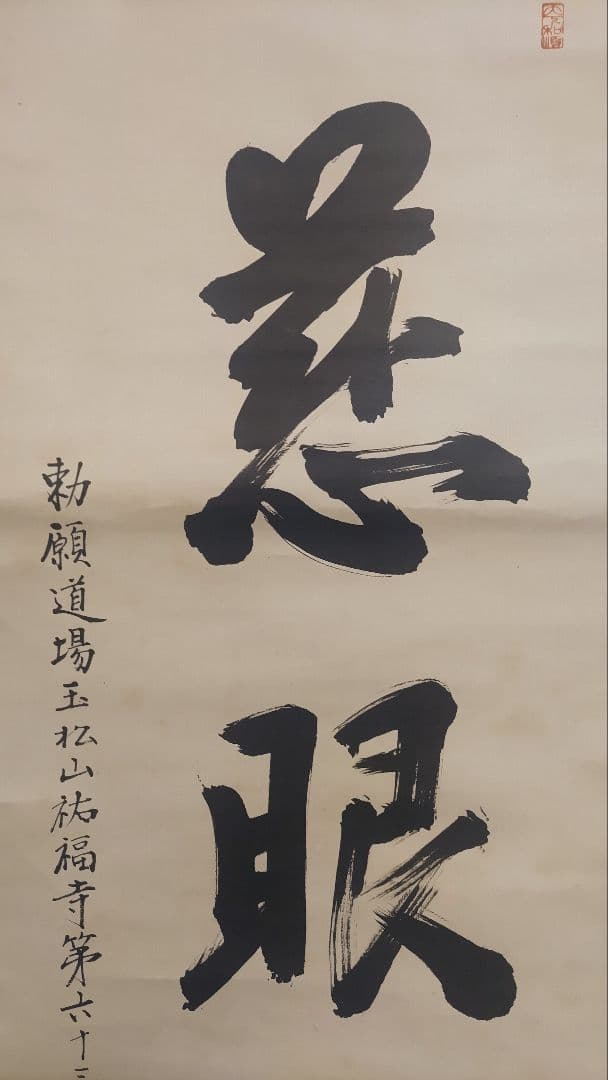 慈眼
勅願道場玉松山祐福寺第六十三